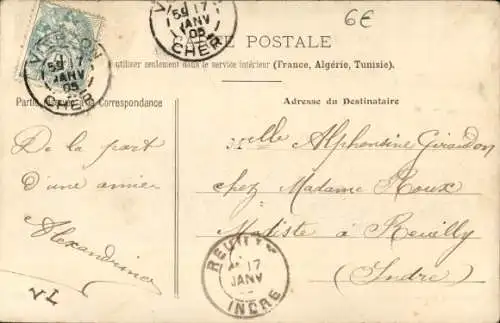 6€
VIERZON
5E 17
JANV
05
CHER
VIERZON
5E 17
JANV
05
CHER
CARTE POSTALE
utiliser seulement dans le service intérieur (France, Algérie, Tunisie).
Partie Correspondance
Adresse du Destinataire
De la part
d'une amie
Alexandrine
Melle Alphonsine Giraudon
chez Madame Roux
Modiste à Reuilly
(Indre)
REUILLY
17
JANV
INDRE